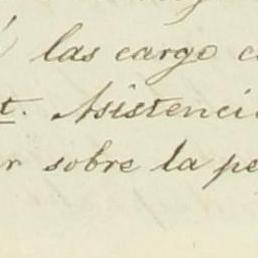 las cargo c
t. Asistenci
r sobre la pe